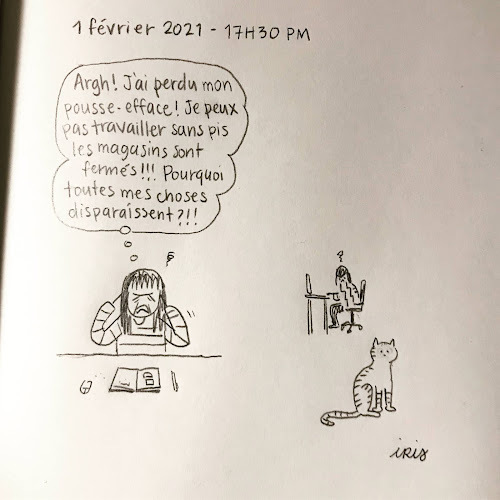 1 février 2021 - 17H30 PM
Argh! J'ai perdu mon
pousse-efface! Je peux
pas travailler sans pis
les magasins sont
fermés!!! Pourquoi
toutes mes choses
disparaissent?!!
?
iris